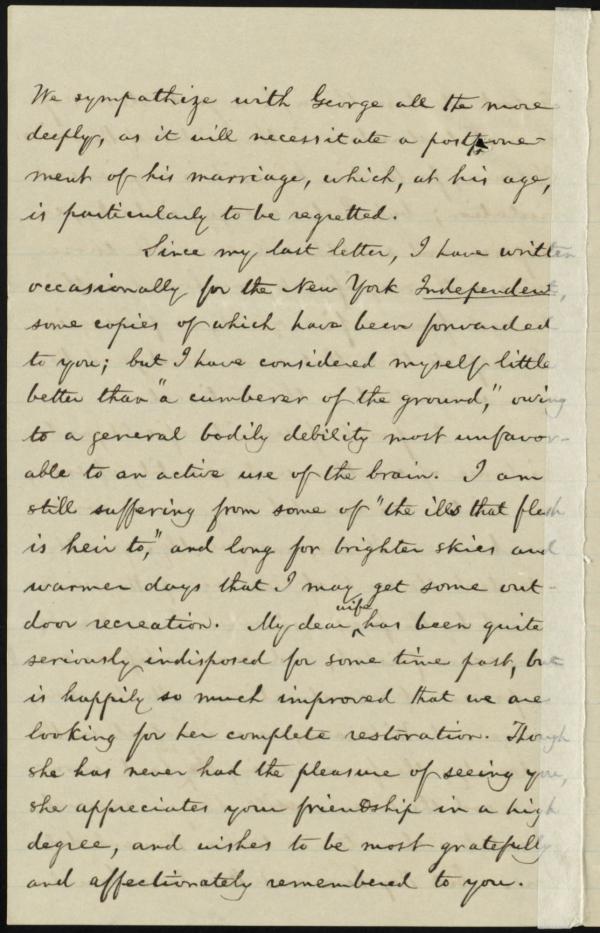 We sympathize with George all the more
deeply, as it will necessitate a postpone-
ment of his marriage, which, at his age,
is particularly to be regretted.
Since my last letter, I have written
occasionally for the New York Independent,
some copies of which have been forwarded
to you; but I have considered myself little
better than "a cumberer of the ground," owing
to a general bodily debility most unfavor-
able to an active use of the brain. I am
still suffering from some of "the ills that flesh
is heir to," and long for brighter skies and
warmer days that I may get some out-
door recreation. My dear wife has been quite
seriously indisposed for some time past, but
is happily so much improved that we are
looking for her complete restoration. Though
she has never had the pleasure of seeing you,
she appreciates your friendship in a high
degree, and wishes to be most gratefully
and affectionately remembered to you.